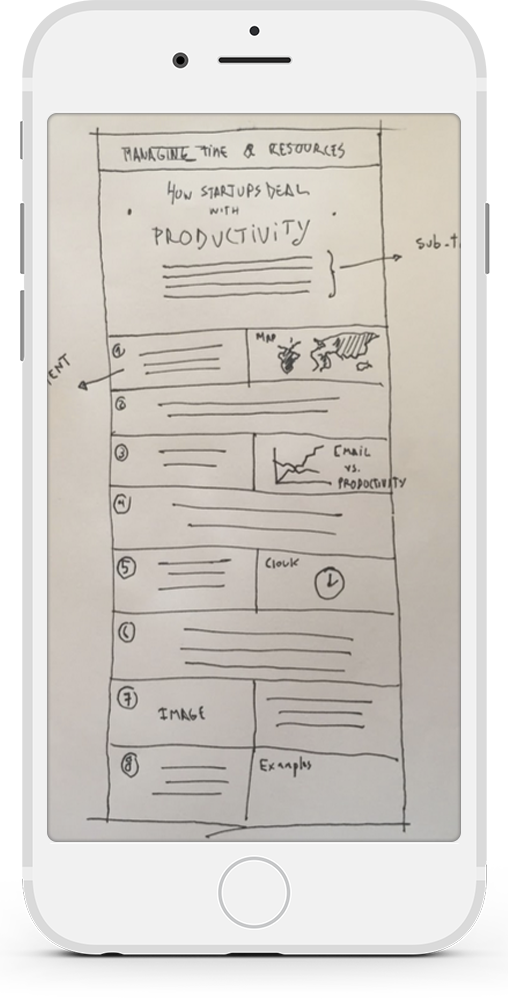 MANAGING TIME & RESOURCES
HOW STARTUPS DEAL
WITH
PRODUCTIVITY
SUB-T
1
MAP
ENT
2
3
EMAIL
VS.
PRODUCTIVITY
4
5
Clock
6
7
IMAGE
8
Examples